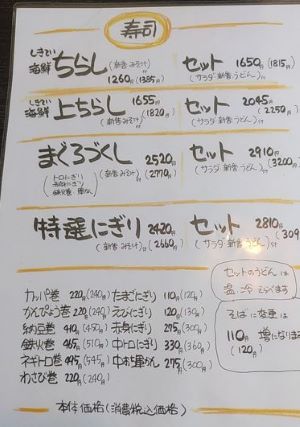 寿司
しきてい
海鮮 ちらし (新香 みそ汁)付 セット 1650円 (1815円)
1260円 (1385円) (サラダ 新香 うどん)付
しきてい
海鮮 上ちらし 1655円 セット 2045円
(1820円) (2250円)
(新香 みそ汁)付 (サラダ 新香 うどん)付
まぐろづくし 2520円 セット 2910円
(3200円)
(新香 みそ汁)付 (2770円) (サラダ 新香 うどん)付
トロにぎり
赤身にぎり
鉄火巻
特選にぎり 2420円 セット 2810円
(309
(新香 みそ汁)付 (2660円) (サラダ 新香 うどん)付
セットのうどんは
温 冷 えらべます
そばに変更は
110円 増になります
(120円)
カッパ巻 220円(240円) たまごにぎり 110円(120円)
かんぴょう巻 220円(240円) えびにぎり 120円(130円)
納豆巻 410円(450円) 赤身にぎり 275円(300円)
鉄火巻 465円(510円) 中トロにぎり 330円(360円)
ネギトロ巻 495円(545円) 275円(300円)
わさび巻 220円(240円)
本体価格(消費税込価格)